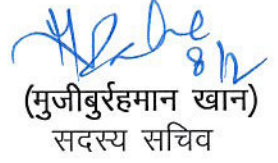 8/12
(मुजीबुर्रहमान खान)
सदस्य सचिव